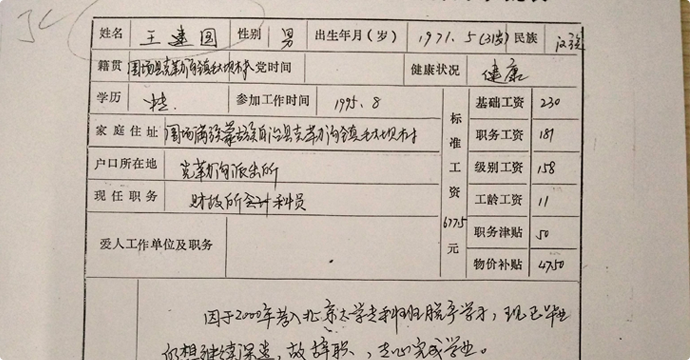 姓名 王建国 性别 男 出生年月(岁) 1971.5(31岁) 民族 汉族
籍贯 围场县克勒沟镇 村 党时间 健康状况 健康
学历 参加工作时间 1995.8 标准工资677.5元 基础工资 230
家庭住址 围场满族蒙古族自治县克勒沟镇 村 职务工资 181
户口所在地 克勒沟派出所 级别工资 158
现任职务 财政所会计科员 工龄工资 11
爱人工作单位及职务 职务津贴 50
物价补贴 47.50
因于2000年考入北京大学专科班脱产学习,现已毕业
仍想继续深造,故辞职、专心完成学业。